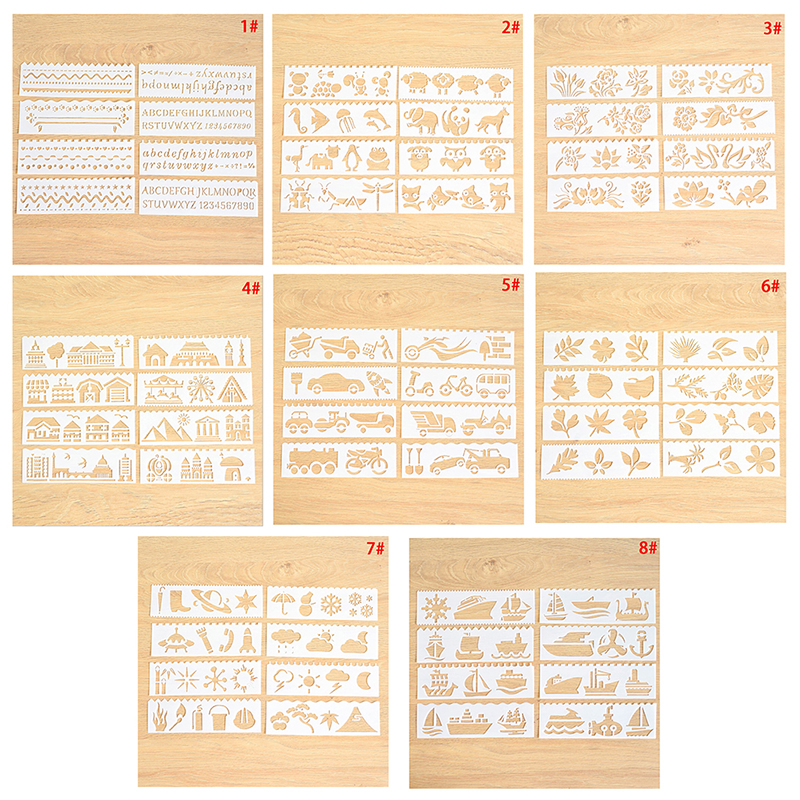 1#
abcdefghijklmnopq
rstuvwxyz
ABCDEFGHIJKLMNOPQ
RSTUVWXYZ 1234567890
abcdefghijklmnop
qrstuvwxyz
ABCDEFGHIJKLMNOPQR
STUVWXYZ 1234567890
2#
3#
4#
5#
6#
7#
8#